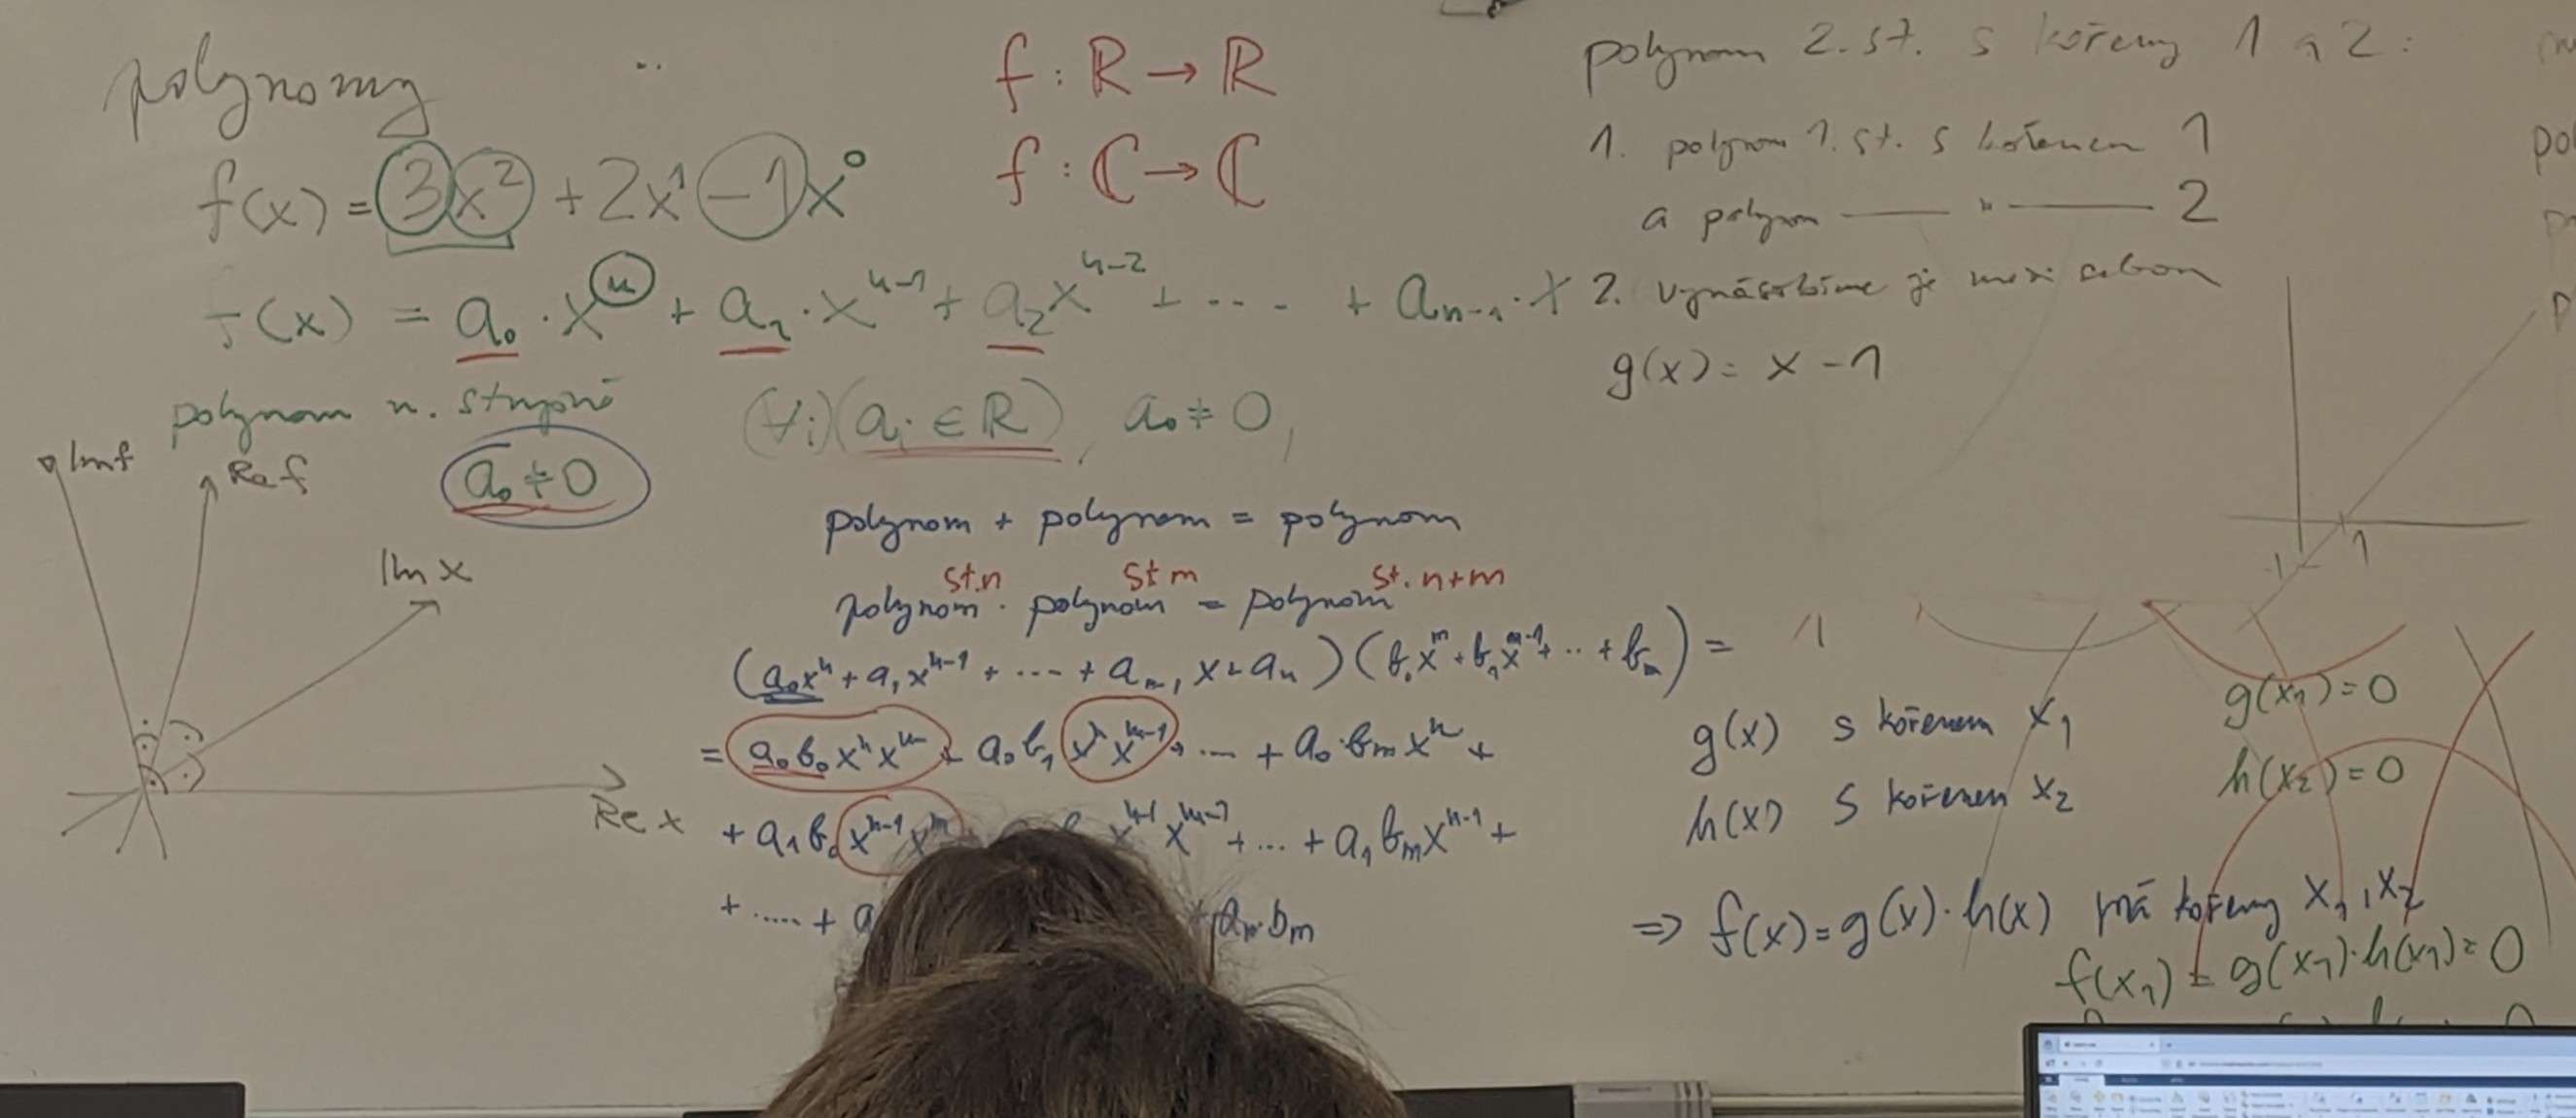 polynomy
f(x) = 3x² + 2x¹ - 1x⁰
f(x) = a₀ · xⁿ + a₁ · xⁿ⁻¹ + a₂xⁿ⁻² + .... + aₙ₋₁ · x
polynom n. stupně
(∀i)(aᵢ ∈ ℝ), a₀ ≠ 0,
a₀ ≠ 0
Im f
Re f
Im x
Re x
f : ℝ → ℝ
f : ℂ → ℂ
polynom + polynom = polynom
st.n st m st. n+m
polynom · polynom = polynom
(a₀xⁿ + a₁xⁿ⁻¹ + ... + aₙ₋₁x + aₙ)(b₀xᵐ + b₁xᵐ⁻¹ + .. + bₘ) =
= a₀b₀xⁿxᵐ + a₀b₁xⁿxᵐ⁻¹ + ... + a₀·bₘxⁿ +
+ a₁b₀xⁿ⁻¹xᵐ xⁿ⁻¹xᵐ⁻¹ + ... + a₁bₘxⁿ⁻¹ +
+ ..... + a + aₙ·bₘ
polynom 2. st. s kořeny 1 a 2 :
1. polynom 1. st. s kořenem 1
a polynom —— " —— 2
2. vynásobíme je mezi sebou
g(x) = x - 1
1
-1
1
g(x) s kořenem x₁
h(x) s kořenem x₂
g(x₁) = 0
h(x₂) = 0
⇒ f(x) = g(x) · h(x) má kořeny x₁, x₂
f(x₁) = g(x₁)·h(x₁) = 0